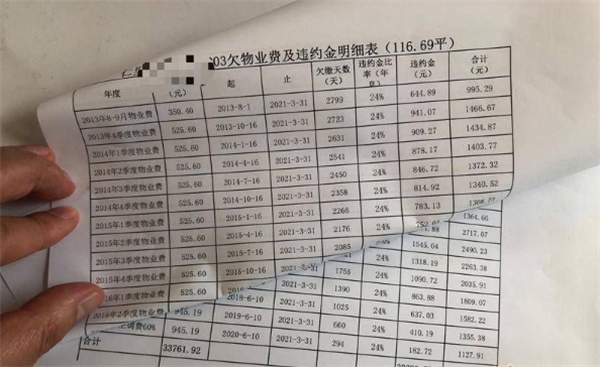 03欠物业费及违约金明细表（116.69平）
年度 （元） 起 止 欠缴天数（天） 违约金比率（年 违约金（元） 合计（元）
2013年8-9月物业费 350.40 2013-8-1 2021-3-31 2799 24% 644.89 995.29
2013年4季度物业费 525.60 2013-10-16 2021-3-31 2723 24% 941.07 1466.67
2014年1季度物业费 525.60 2014-1-16 2021-3-31 2631 24% 909.27 1434.87
2014年2季度物业费 525.60 2014-4-16 2021-3-31 2541 24% 878.17 1403.77
2014年3季度物业费 525.60 2014-7-16 2021-3-31 2450 24% 846.72 1372.32
2014年4季度物业费 525.60 2014-10-16 2021-3-31 2358 24% 814.92 1340.52
2015年1季度物业费 525.60 2015-1-16 2021-3-31 2266 24% 783.13
1364.66
2015年2季度物业费 525.60 2015-4-16 2021-3-31 2176 24% 2717.07
2015年3季度物业费 525.60 2015-7-16 2021-3-31 2085 1545.04 2490.23
2015年4季度物业费 525.60 2015-10-16 2021-3-31 24% 1318.19 2263.38
2016年1季度物业费 1755 24% 1090.72 2035.91
2018-6-10 2021-3-31 1390 24% 863.88 1809.07
2016年2季度物业费 945.19 2019-6-10 2021-3-31 1025 24% 637.03 1582.22
费60% 945.19 2020-6-10 2021-3-31 660 24% 410.19 1355.38
合计 33761.92 294 24% 182.72 1127.91